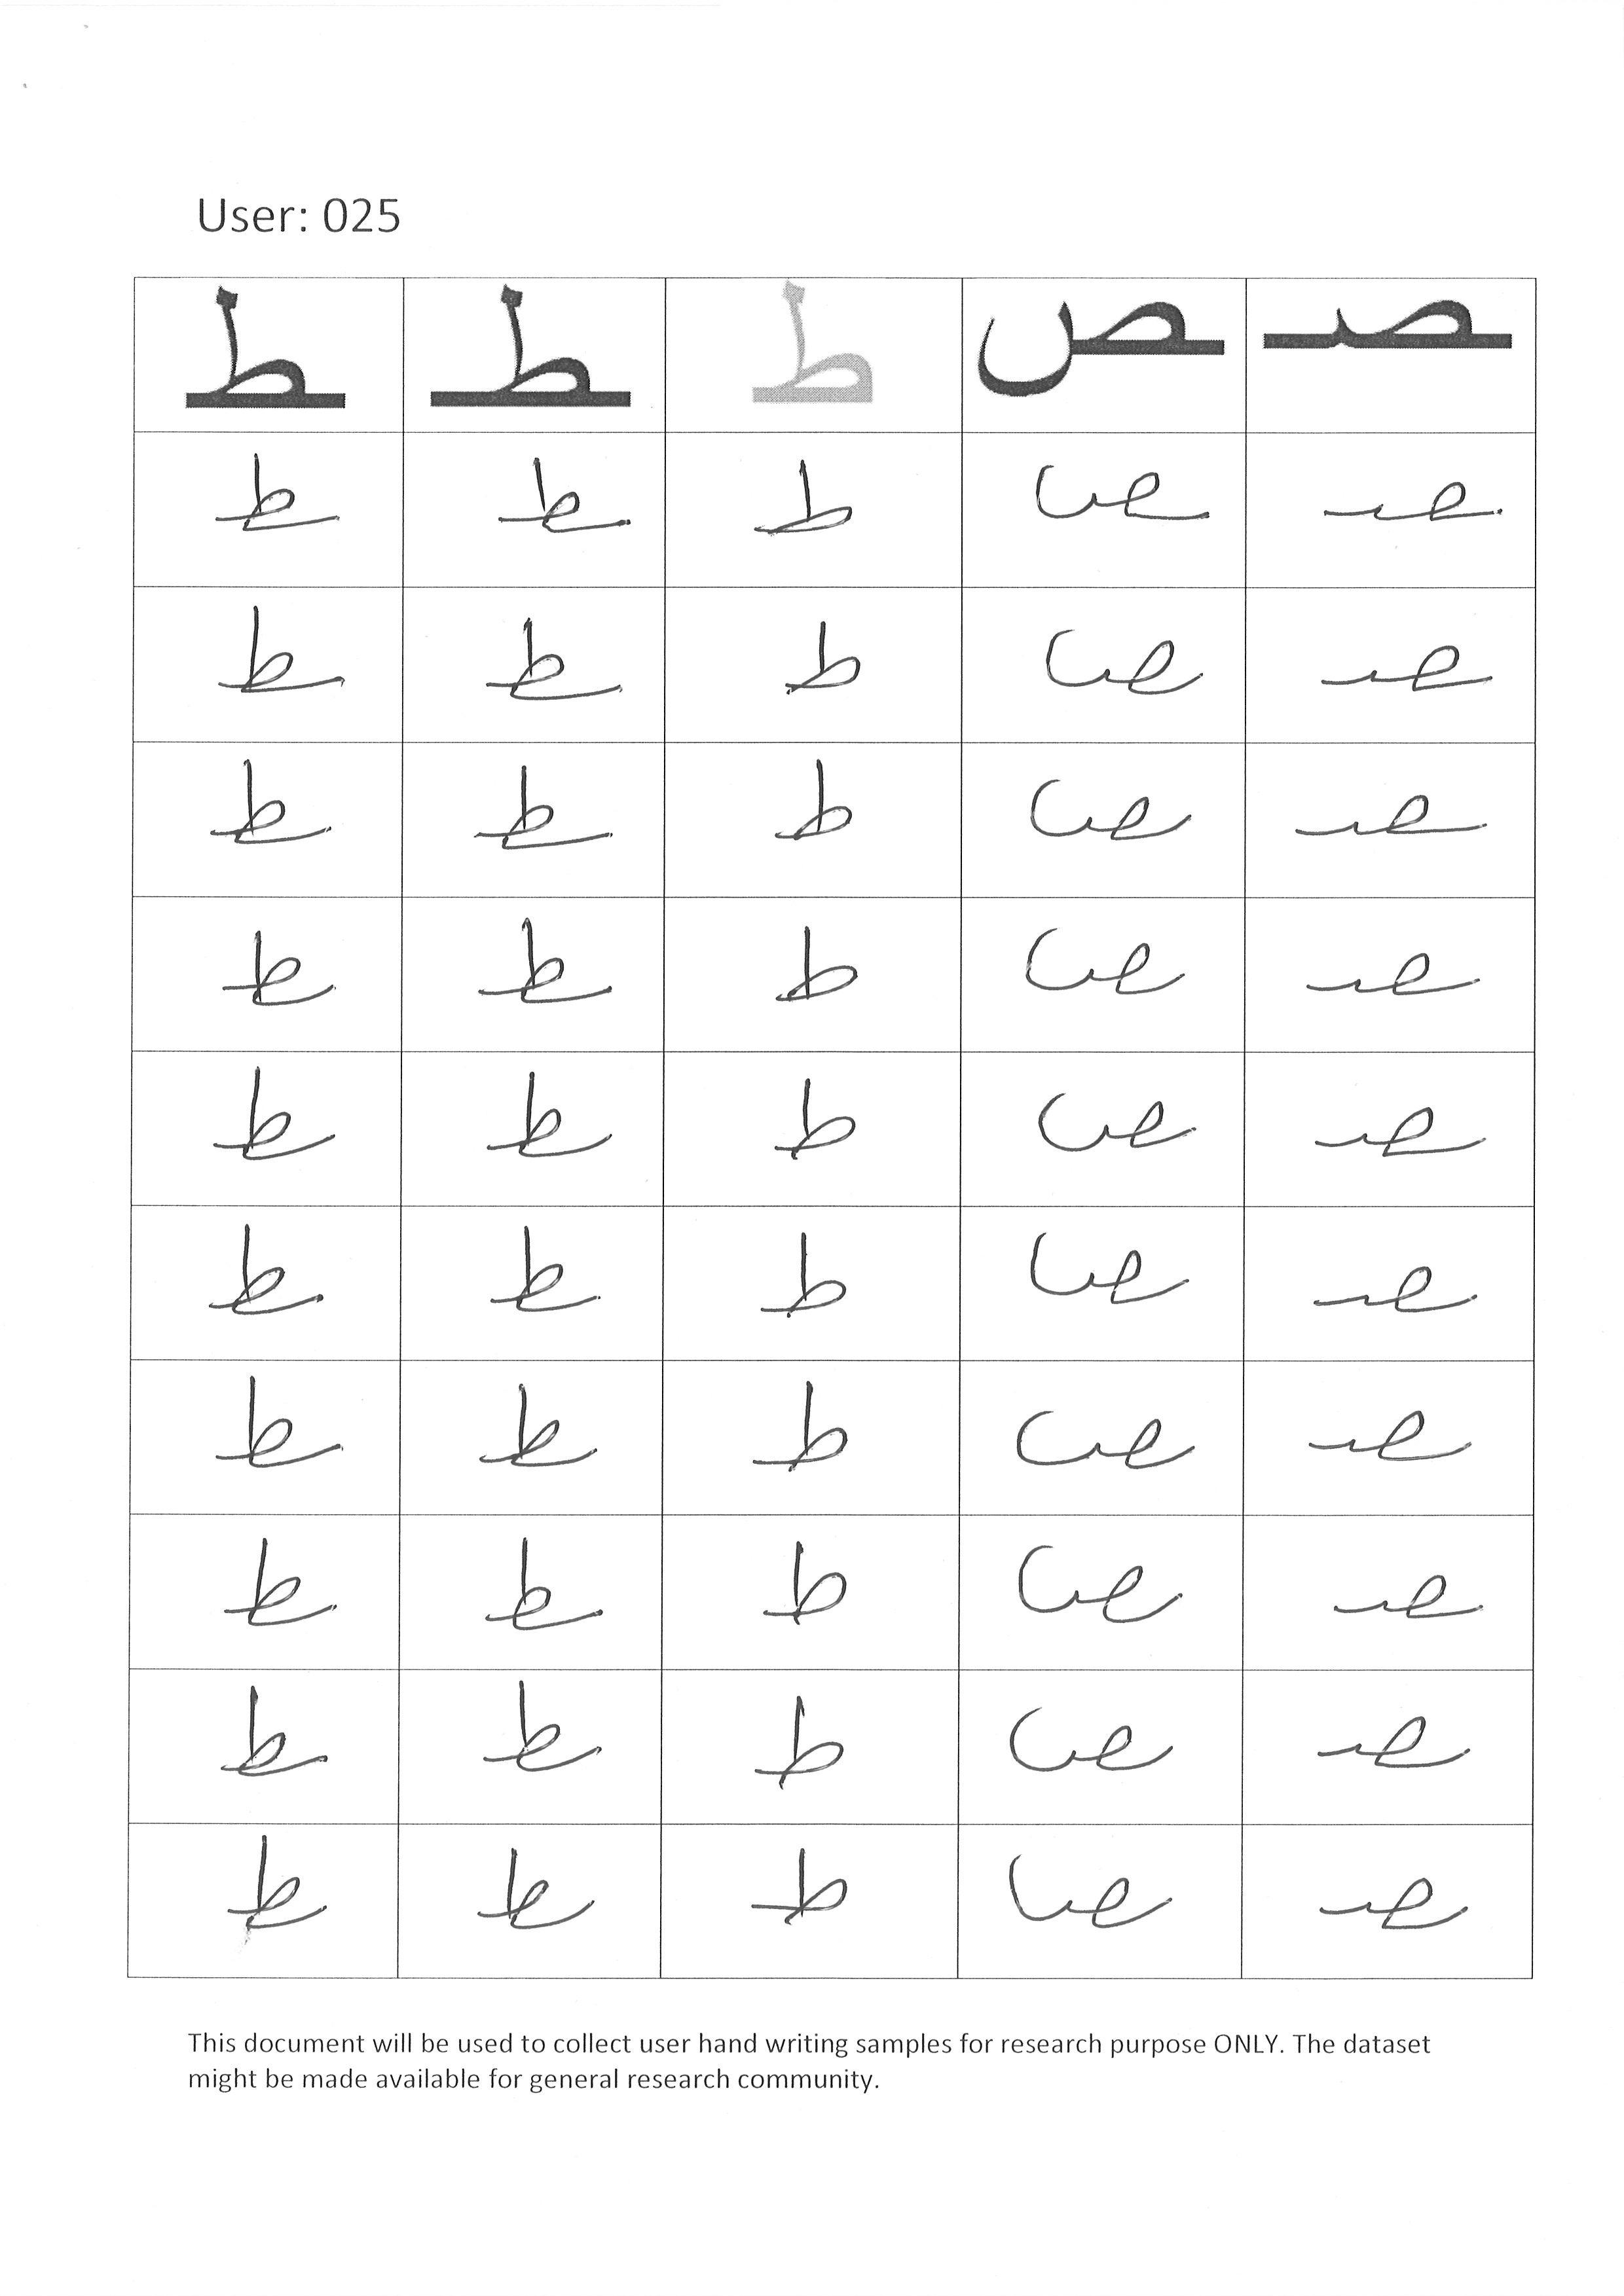 User: 025
ـصـ ـص ط ـطـ ـط
ـصـ ـص ط ـطـ ـط
ـصـ ـص ط ـطـ ـط
ـصـ ـص ط ـطـ ـط
ـصـ ـص ط ـطـ ـط
ـصـ ـص ط ـطـ ـط
ـصـ ـص ط ـطـ ـط
ـصـ ـص ط ـطـ ـط
ـصـ ـص ط ـطـ ـط
ـصـ ـص ط ـطـ ـط
ـصـ ـص ط ـطـ ـط
This document will be used to collect user hand writing samples for research purpose ONLY. The dataset
might be made available for general research community.